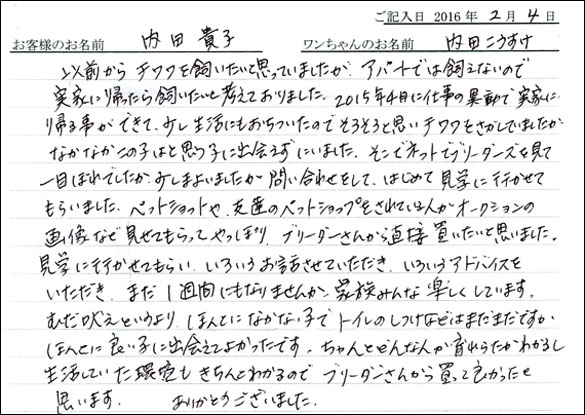 ご記入日 2016 年 2 月 4 日
お客様のお名前 内田 貴子 ワンちゃんのお名前 内田こうすけ
以前からチワワを飼いたいと思っていましたが、アパートでは飼えないので
実家に帰ったら飼いたいと考えておりました。2015年4月に仕事の異動で実家に
帰る事ができて、少し生活にもおちついたのでそろそろと思いチワワをさがしていましたが
なかなかこの子はと思う子に出会えずにいました。そこでネットでブリーダーズを見て
一目ぼれでしたが、少しまよいましたが問い合わせをして、はじめて見学に行かせて
もらいました。ペットショットや、友達のペットショップをされている人がオークションの
画像など見せてもらってやっぱり、ブリーダーさんから直接買いたいと思いました。
見学に行かせてもらい、いろいろお話させていただき、いろいろアドバイスを
いただき、まだ1週間にもなりませんが、家族みんな楽しくしています。
むだ吠えというより、ほんとになかない子でトイレのしつけなどはまだまだですが
ほんとに良い子に出会えてよかったです。ちゃんとどんな人が育れらたかわかるし
生活していた環境もきちんとわかるのでブリーダーさんから買って良かったと
思います。 ありがとうございました。